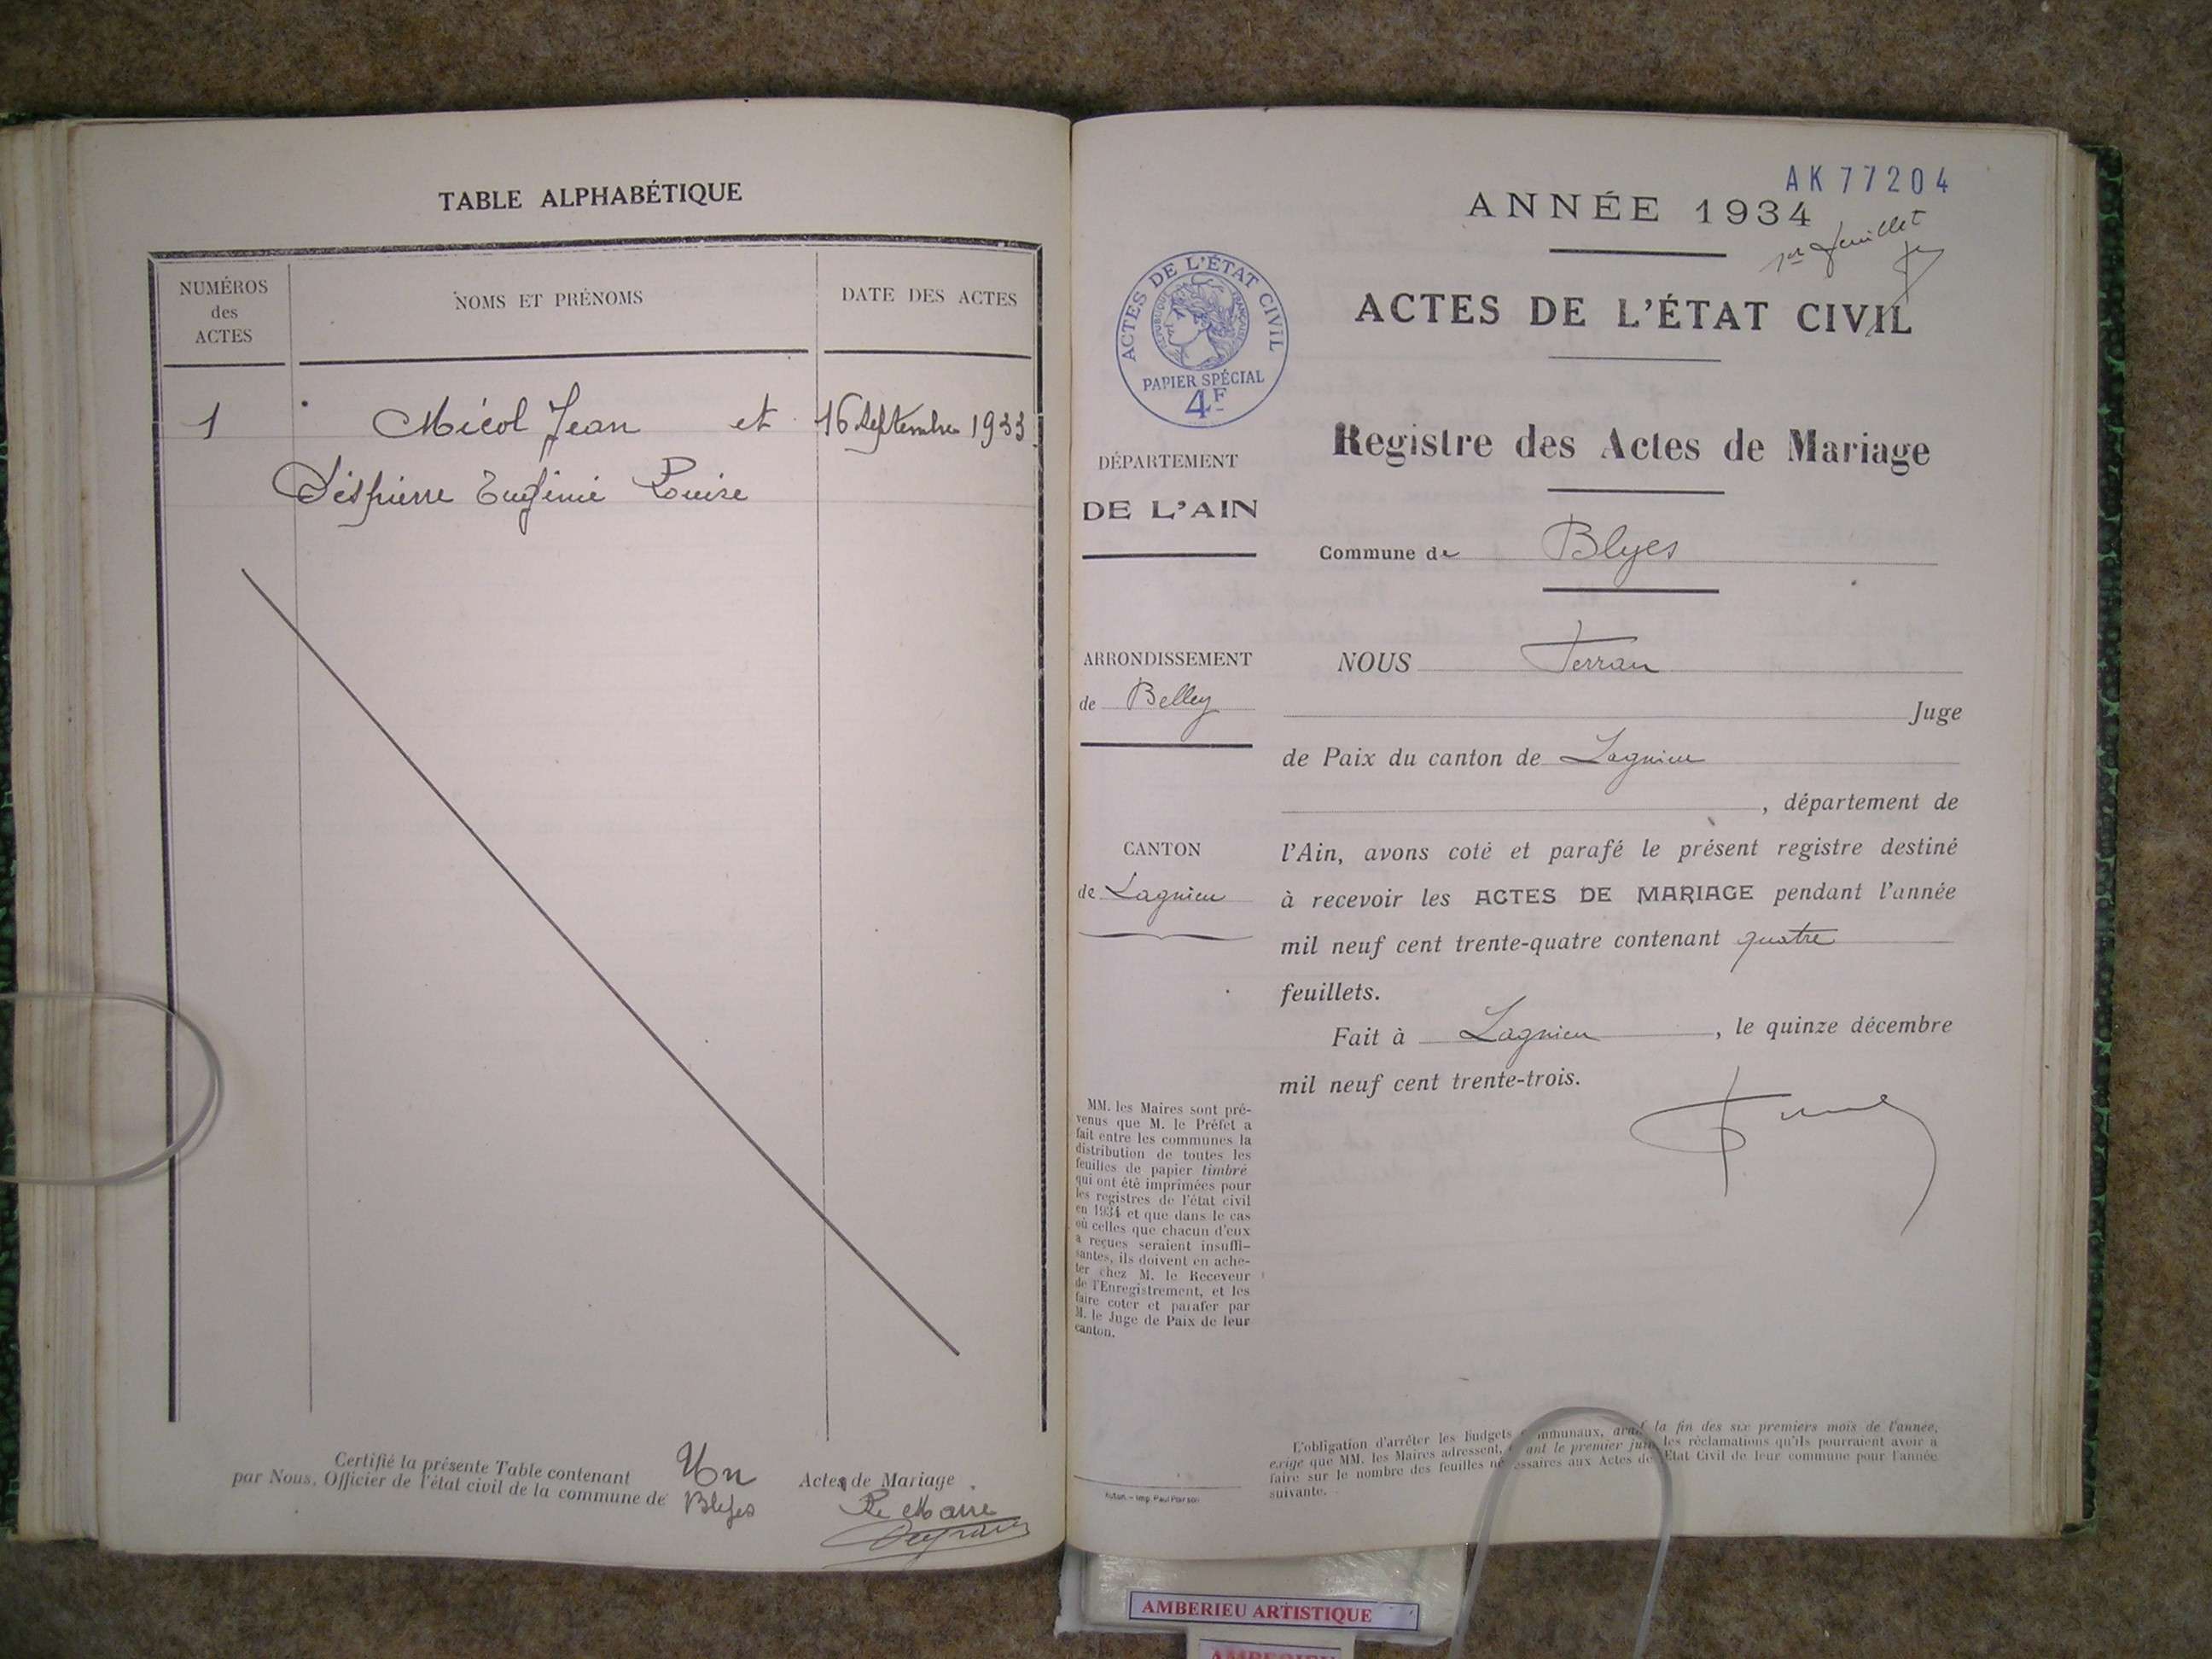 TABLE ALPHABÉTIQUE
NUMÉROS
des
ACTES
NOMS ET PRÉNOMS
DATE DES ACTES
1 Micol Jean et 16 Septembre 1933
Déspierre Eugénie Louise
Certifié la présente Table contenant Un Actes de Mariage
par Nous, Officier de l'état civil de la commune de Blyes
Le Maire
AK 77204
ANNÉE 1934
1er feuillet
ACTES DE L'ÉTAT CIVIL
ACTES DE L'ÉTAT CIVIL
RÉPUBLIQUE FRANÇAISE
PAPIER SPÉCIAL
4F
Registre des Actes de Mariage
DÉPARTEMENT
DE L'AIN
Commune de Blyes
ARRONDISSEMENT
de Belley
CANTON
de Lagnieu
NOUS Ferran
Juge
de Paix du canton de Lagnieu
, département de
l'Ain, avons coté et parafé le présent registre destiné
à recevoir les ACTES DE MARIAGE pendant l'année
mil neuf cent trente-quatre contenant quatre
feuillets.
Fait à Lagnieu, le quinze décembre
mil neuf cent trente-trois.
MM. les Maires sont pré-
venus que M. le Préfet a
fait entre les communes la
distribution de toutes les
feuilles de papier timbré
qui ont été imprimées pour
les registres de l'état civil
en 1934 et que dans le cas
où celles que chacun d'eux
a reçues seraient insuffi-
santes, ils doivent en ache-
ter chez M. le Receveur
de l'Enregistrement, et les
faire coter et parafer par
M. le Juge de Paix de leur
canton.
L'obligation d'arrêter les Budgets communaux, avant la fin des six premiers mois de l'année,
exige que MM. les Maires adressent, avant le premier juin les réclamations qu'ils pourraient avoir à
faire sur le nombre des feuilles nécessaires aux Actes de l'État Civil de leur commune pour l'année
suivante.
Imp. Paul Pierson
AMBERIEU ARTISTIQUE
AMBERIEU